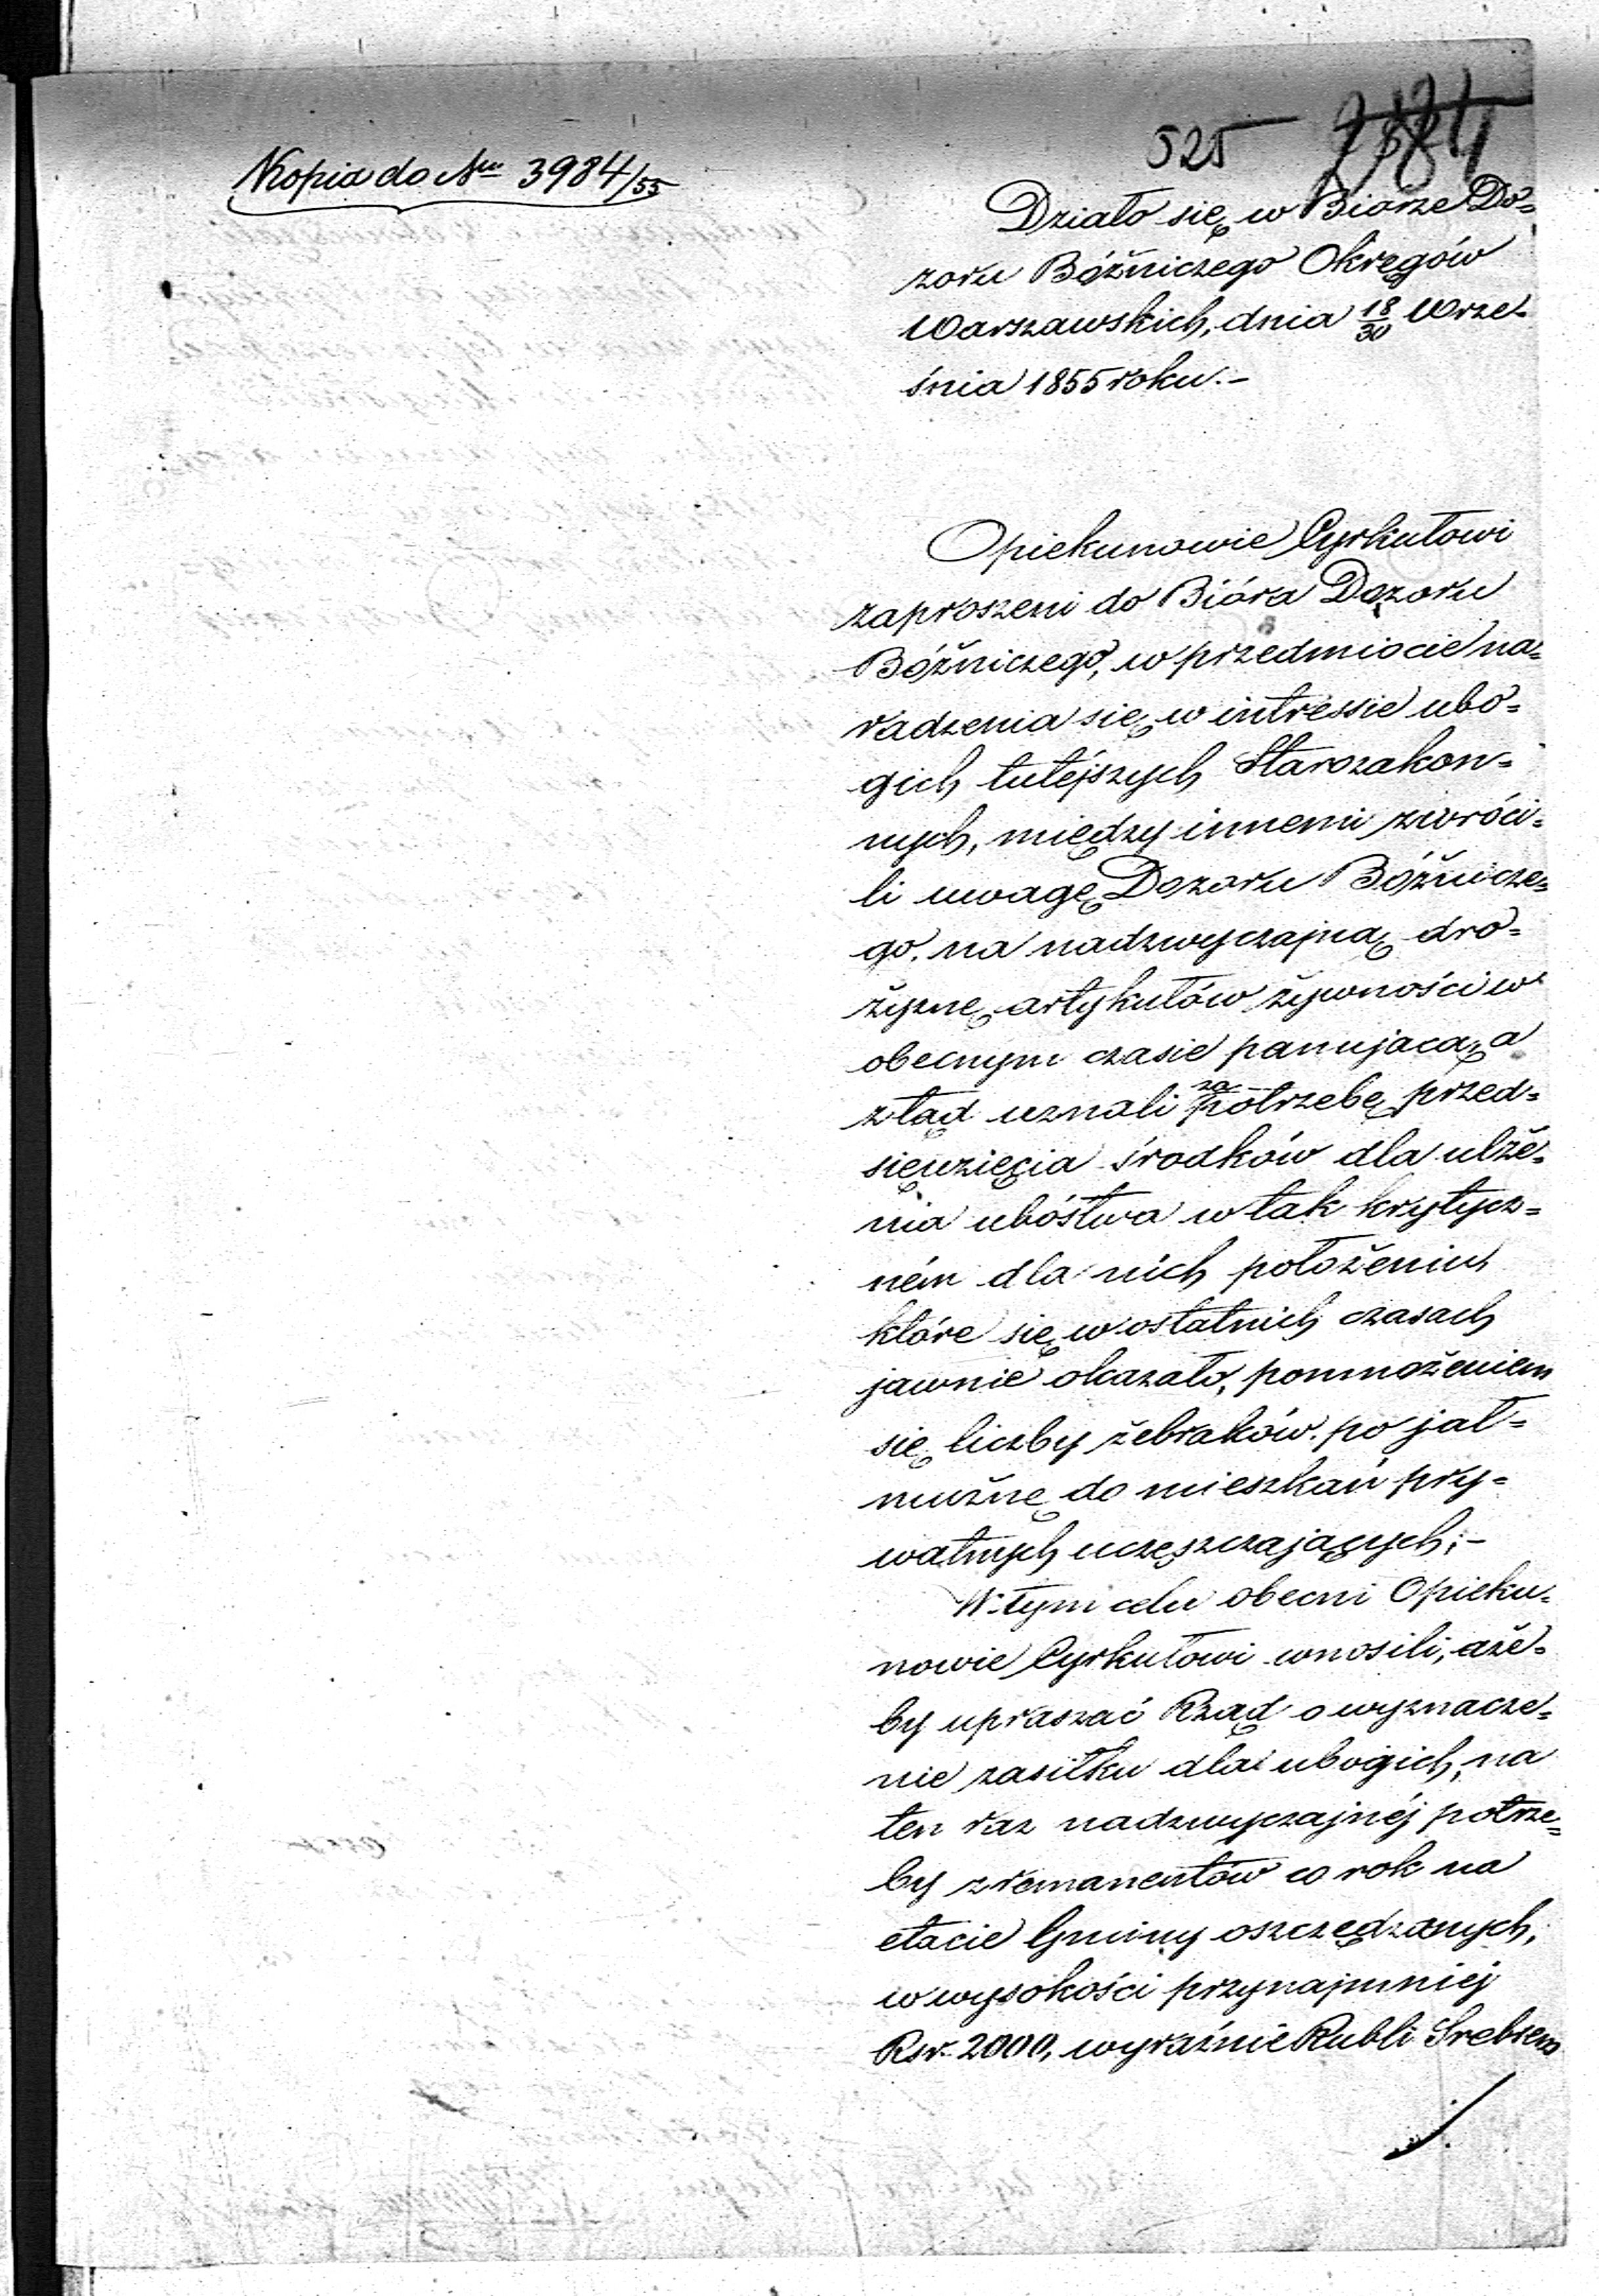 525
Kopia do Nru 3984/55
Działo się w Biórze Do=
zoru Bóżniczego Okręgów
Warszawskich, dnia 18/30 Wrze-
śnia 1855 roku.-
Opiekunowie Cyrkułowi
zaproszeni do Bióra Dozoru
Bóżniczego, w przedmiocie na=
radzenia się w intressie ubo=
gich tutéjszych Starozakon=
nych, między innemi zwróci=
li uwagę Dozoru Bóżnicze=
go, na nadzwyczajną dro=
żyznę artykułów żywności w
obecnym czasie panującą, a
ztąd uznali za potrzebę przed=
sięwzięcia środków dla ulże=
nia ubóstwa w tak krytycz=
ném dla nich położeniu
które się w ostatnich czasach
jawnie okazało, pomnożeniem
się liczby żebraków po jał=
mużnę do mieszkań pry=
watnych uczęszczających;-
W tym celu obecni Opieku=
nowie Cyrkułowi wnosili, aże=
by upraszać Rząd o wyznacze=
nie zasiłku dla ubogich, na
ten raz nadzwyczajnéj potrze=
by z remanentów co rok na
etacie Gminy oszczędzanych,
w wysokości przynajmniéj
Rsr. 2000, wyraźnie Rubli Srebrem